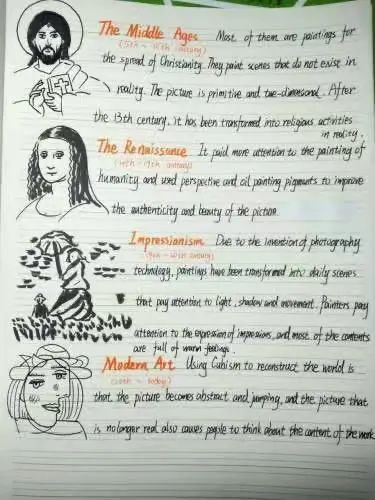 The Middle Ages Most of them are paintings for
(5th ~ 15th century)
the spread of Christianity. They paint scenes that do not exist in
reality. The picture is primitive and two-dimensional. After
the 13th century, it has been transformed into religious activities
in reality.
The Renaissance It paid more attention to the painting of
(14th ~ 17th century)
humanity and used perspective and oil painting pigments to improve
the authenticity and beauty of the picture.
Impressionism Due to the invention of photography
(19th ~ 20th century)
technology, paintings have been transformed into daily scenes
that pay attention to light, shadow and movement. Painters pay
attention to the expression of impressions, and most of the contents
are full of warm feelings.
Modern Art Using Cubism to reconstruct the world is
(20th ~ today)
that the picture becomes abstract and jumping, and the picture that
is no longer real also causes people to think about the content of the work.